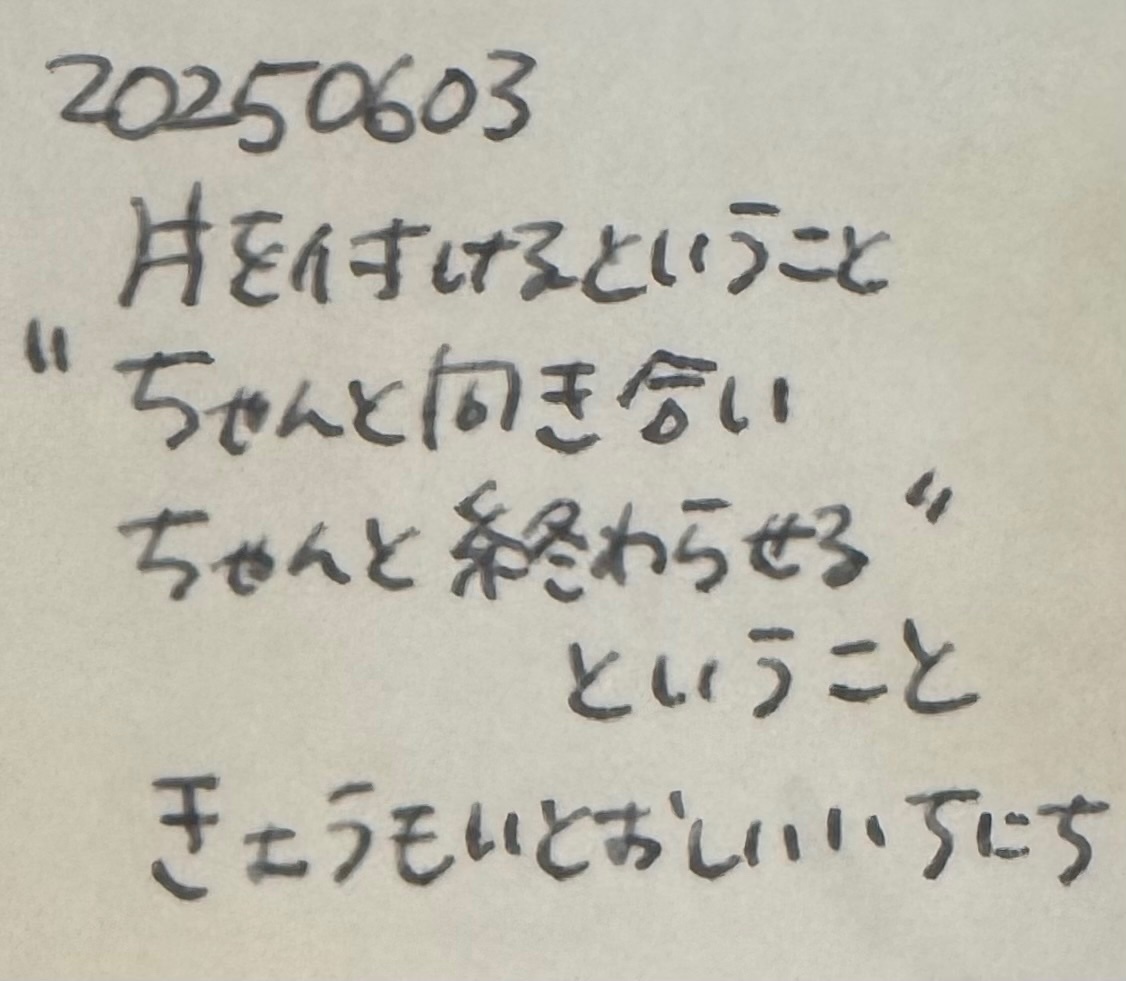 20250603
片を付けるということ
"ちゃんと向き合い
ちゃんと終わらせる"
ということ
きょうもいとおしいいちにち